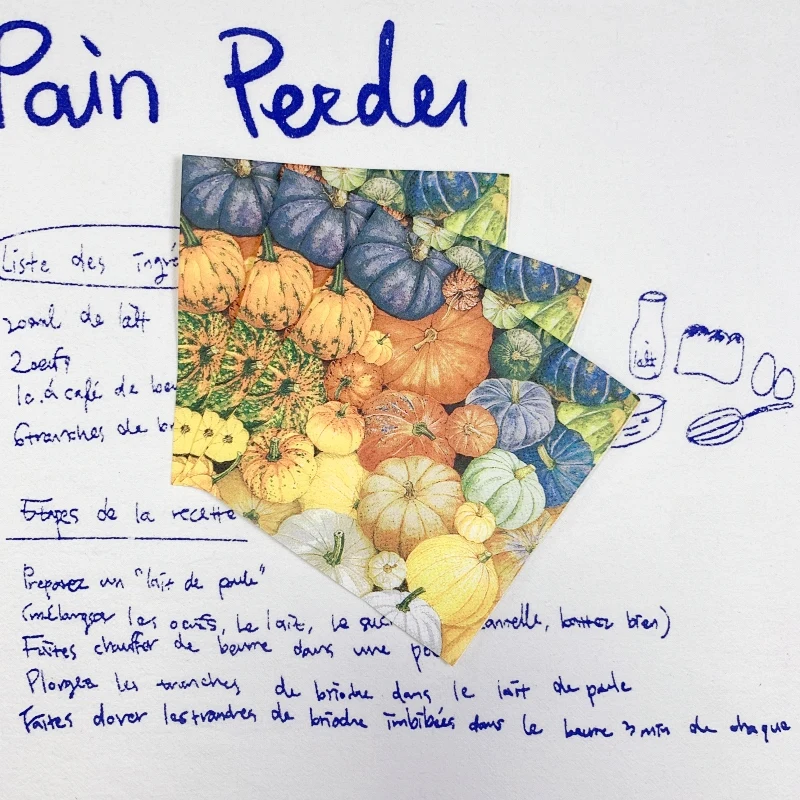 Pain Perdu
Liste des ingré
200ml de lait
2 oeufs
1c. à café de beu
6 tranches de br
lait
Etapes de la recette
Préparez un "lait de poule"
(mélanger les oeufs, le lait, le suc annelle, battez bien)
Faites chauffer de beurre dans une po
Plongez les tranches de brioche dans le lait de poule
Faites dorer les tranches de brioche imbibées dans le beurre 3 min de chaque